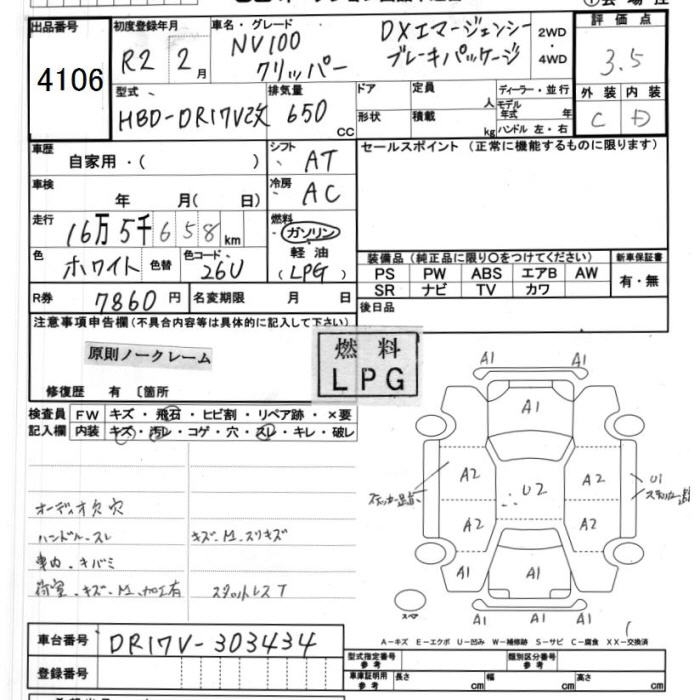 出品番号
4106
初度登録年月
R2 2月
車名・グレード
NV100
クリッパー
DXエマージェンシー
ブレーキパッケージ
2WD
・
4WD
評価点
3.5
外装 内装
C D
型式
HBD-DR17V改
排気量
650 CC
ドア
定員
人
形状
積載
kg
ディーラー・並行
モデル
年式 年
ハンドル 左・右
車歴
自家用・( )
シフト
AT
セールスポイント(正常に機能するものに限ります)
車検
年 月( 日)
冷房
AC
走行
16万5千658km
燃料
ガソリン
軽油
(LPG)
色
ホワイト
色替
色コード
26U
装備品(純正品に限り○をつけてください)
PS PW ABS エアB AW
SR ナビ TV カワ
新車保証書
有・無
R券
7860円
名変期限 月 日
後日品
注意事項申告欄(不具合内容等は具体的に記入して下さい)
原則ノークレーム
燃料
LPG
修復歴 有 〔箇所
検査員
記入欄
FW キズ・飛石・ヒビ割・リペア跡・×要
内装 キズ・汚レ・コゲ・穴・スレ・キレ・破レ
オーディオ欠 穴
ハンドル・スレ
キズ.M.スリキズ
車内.キバミ
荷室.キズ.M.加工有
スタットレスT
A1 A1
A1
A2 A2
U2
A2 A2
A1 A1 A1
A1 A1
U1
スペア
A-キズ E-エクボ U-凹み W-補修跡 S-サビ C-腐食 XX-交換済
車台番号
DR17V-303434
登録番号
型式指定番号
参考
類別区分番号
参考
車庫証明用
参考
長さ cm
幅 cm
高さ cm